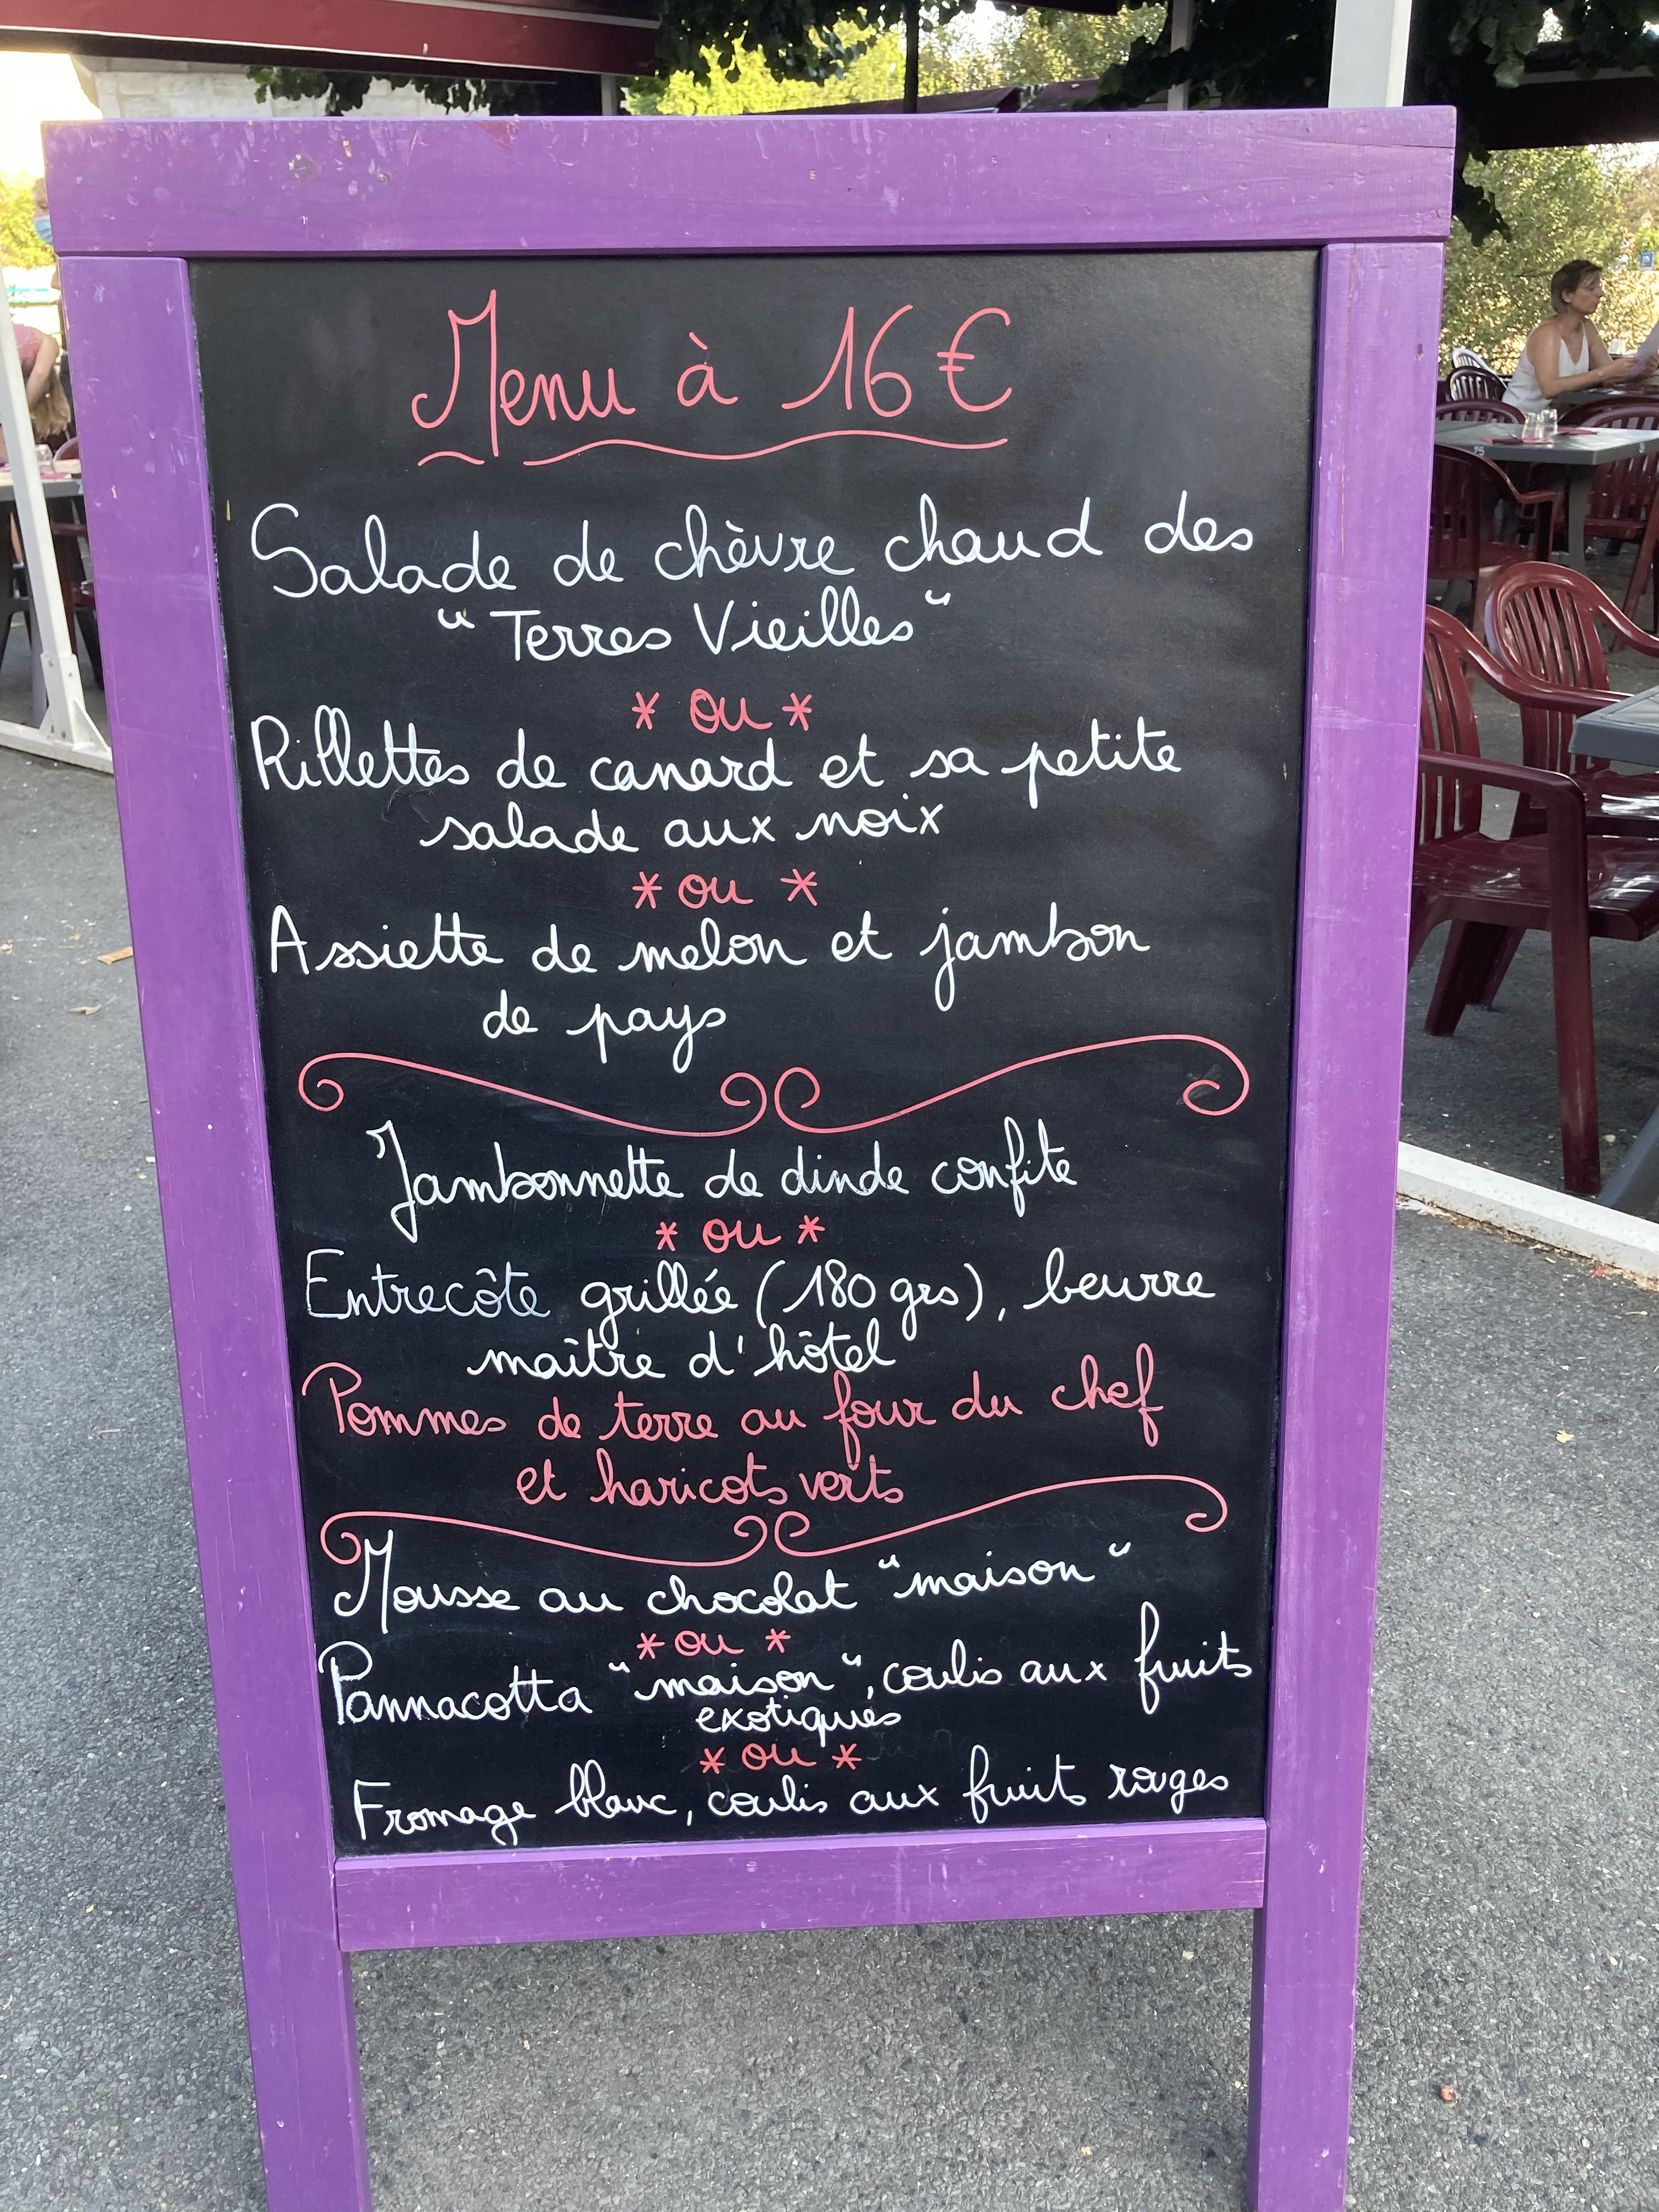 Menu à 16€
Salade de chèvre chaud des
"Terres Vieilles"
* ou *
Rillettes de canard et sa petite
salade aux noix
* ou *
Assiette de melon et jambon
de pays
Jambonnette de dinde confite
* ou *
Entrecôte grillée (180 grs), beurre
maître d'hôtel
Pommes de terre au four du chef
et haricots verts
Mousse au chocolat "maison"
* ou *
Pannacotta "maison", coulis aux fruits
exotiques
* ou *
Fromage blanc, coulis aux fruit rouges